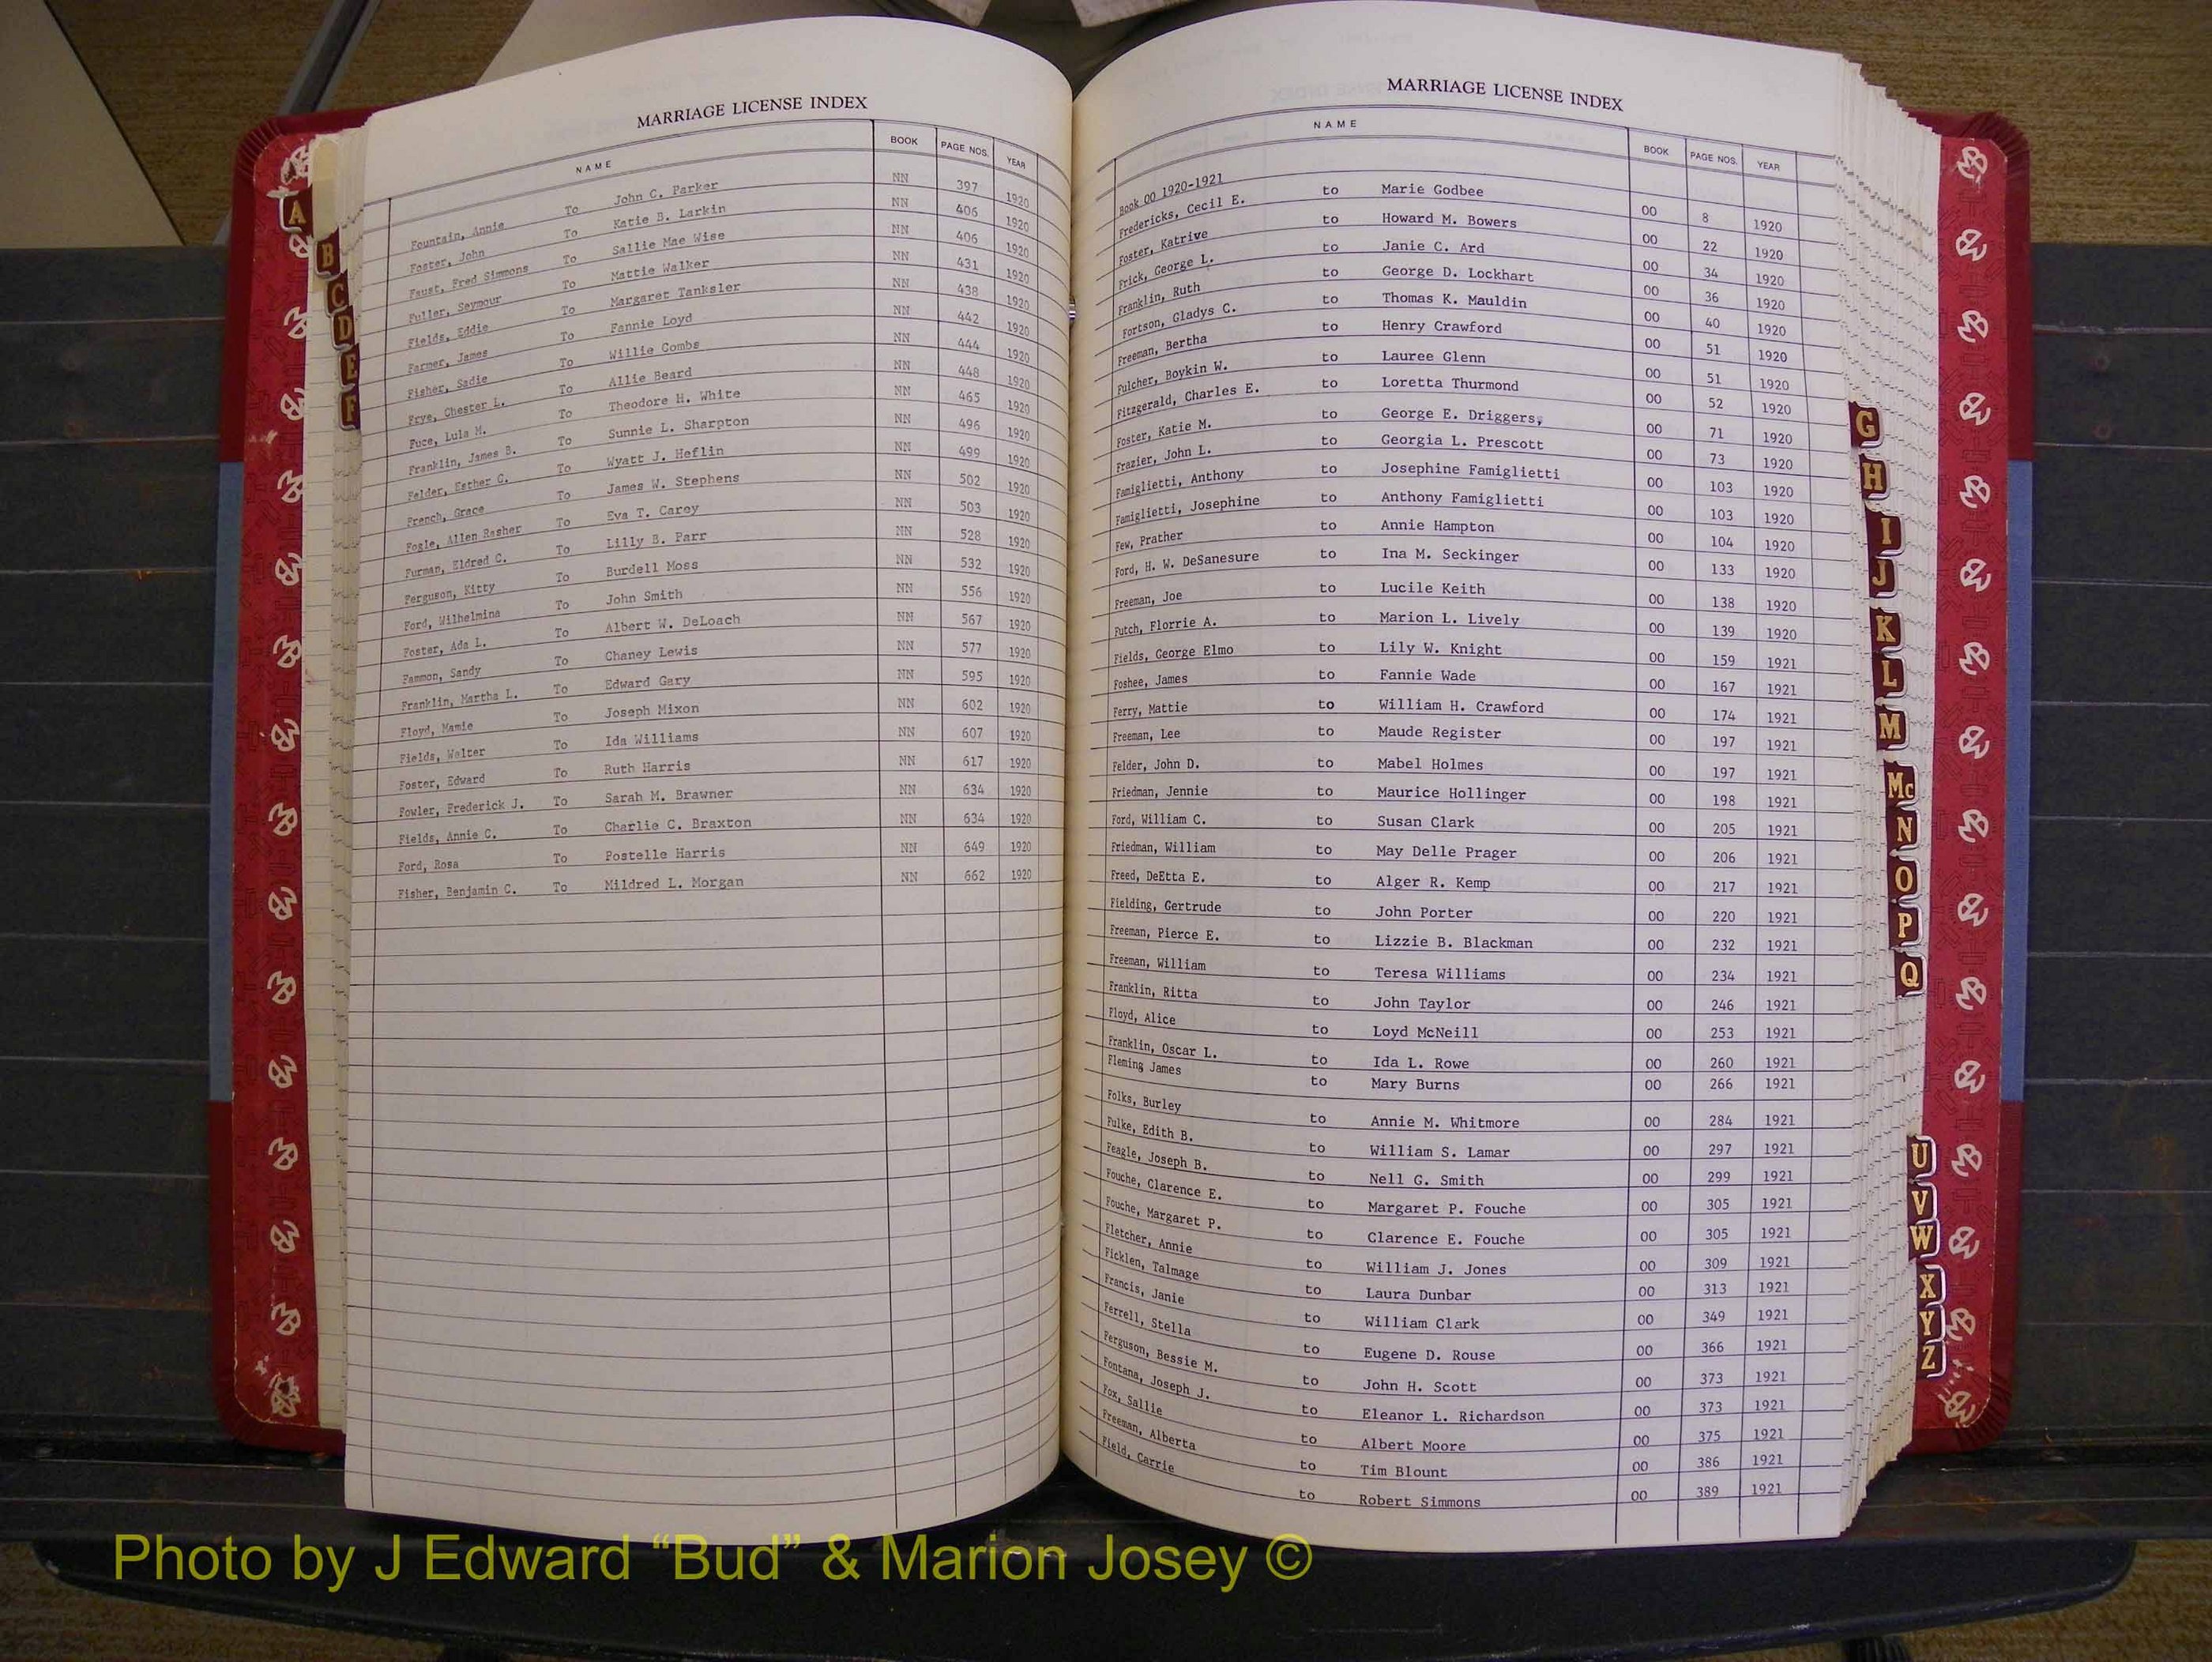 MARRIAGE LICENSE INDEX
NAME BOOK PAGE NOS. YEAR
Fountain, Annie To John C. Parker NN 397 1920
Foster, John To Katie B. Larkin NN 406 1920
Faust, Fred Simmons To Sallie Mae Wise NN 406 1920
Fuller, Seymour To Mattie Walker NN 431 1920
Fields, Eddie To Margaret Tanksler NN 438 1920
Farmer, James To Fannie Loyd NN 442 1920
Fisher, Sadie To Willie Combs NN 444 1920
Frye, Chester L. To Allie Beard NN 448 1920
Fuce, Lula M. To Theodore H. White NN 465 1920
Franklin, James B. To Sunnie L. Sharpton NN 496 1920
Felder, Esther G. To Wyatt J. Heflin NN 499 1920
French, Grace To James W. Stephens NN 502 1920
Fogle, Allen Rasher To Eva T. Carey NN 503 1920
Furman, Eldred C. To Lilly B. Parr NN 528 1920
Ferguson, Kitty To Burdell Moss NN 532 1920
Ford, Wilhelmina To John Smith NN 556 1920
Foster, Ada L. To Albert W. DeLoach NN 567 1920
Fammon, Sandy To Chaney Lewis NN 577 1920
Franklin, Martha L. To Edward Gary NN 595 1920
Floyd, Mamie To Joseph Mixon NN 602 1920
Fields, Walter To Ida Williams NN 607 1920
Foster, Edward To Ruth Harris NN 617 1920
Fowler, Frederick J. To Sarah M. Brawner NN 634 1920
Fields, Annie C. To Charlie C. Braxton NN 634 1920
Ford, Rosa To Postelle Harris NN 649 1920
Fisher, Benjamin C. To Mildred L. Morgan NN 662 1920
MARRIAGE LICENSE INDEX
NAME BOOK PAGE NOS. YEAR
Book OO 1920-1921
Fredericks, Cecil E. to Marie Godbee OO 8 1920
Foster, Katrive to Howard M. Bowers OO 22 1920
Frick, George L. to Janie C. Ard OO 34 1920
Franklin, Ruth to George D. Lockhart OO 36 1920
Fortson, Gladys C. to Thomas K. Mauldin OO 40 1920
Freeman, Bertha to Henry Crawford OO 51 1920
Fulcher, Boykin W. to Lauree Glenn OO 51 1920
Fitzgerald, Charles E. to Loretta Thurmond OO 52 1920
Foster, Katie M. to George E. Driggers, OO 71 1920
Frazier, John L. to Georgia L. Prescott OO 73 1920
Famiglietti, Anthony to Josephine Famiglietti OO 103 1920
Famiglietti, Josephine to Anthony Famiglietti OO 103 1920
Few, Prather to Annie Hampton OO 104 1920
Ford, H. W. DeSanesure to Ina M. Seckinger OO 133 1920
Freeman, Joe to Lucile Keith OO 138 1920
Futch, Florrie A. to Marion L. Lively OO 139 1920
Fields, George Elmo to Lily W. Knight OO 159 1921
Foshee, James to Fannie Wade OO 167 1921
Ferry, Mattie to William H. Crawford OO 174 1921
Freeman, Lee to Maude Register OO 197 1921
Felder, John D. to Mabel Holmes OO 197 1921
Friedman, Jennie to Maurice Hollinger OO 198 1921
Ford, William C. to Susan Clark OO 205 1921
Friedman, William to May Delle Prager OO 206 1921
Freed, DeEtta E. to Alger R. Kemp OO 217 1921
Fielding, Gertrude to John Porter OO 220 1921
Freeman, Pierce E. to Lizzie B. Blackman OO 232 1921
Freeman, William to Teresa Williams OO 234 1921
Franklin, Ritta to John Taylor OO 246 1921
Floyd, Alice to Loyd McNeill OO 253 1921
Franklin, Oscar L. to Ida L. Rowe OO 260 1921
Fleming James to Mary Burns OO 266 1921
Folks, Burley to Annie M. Whitmore OO 284 1921
Fulke, Edith B. to William S. Lamar OO 297 1921
Feagle, Joseph B. to Nell G. Smith OO 299 1921
Fouche, Clarence E. to Margaret P. Fouche OO 305 1921
Fouche, Margaret P. to Clarence E. Fouche OO 305 1921
Fletcher, Annie to William J. Jones OO 309 1921
Ficklen, Talmage to Laura Dunbar OO 313 1921
Francis, Janie to William Clark OO 349 1921
Ferrell, Stella to Eugene D. Rouse OO 366 1921
Ferguson, Bessie M. to John H. Scott OO 373 1921
Fontana, Joseph J. to Eleanor L. Richardson OO 373 1921
Fox, Sallie to Albert Moore OO 375 1921
Freeman, Alberta to Tim Blount OO 386 1921
Field, Carrie to Robert Simmons OO 389 1921
A
B
C
D
E
F
G
H
I
J
K
L
M
Mc
N
O
P
Q
U
V
W
X
Y
Z
Photo by J Edward “Bud” & Marion Josey ©